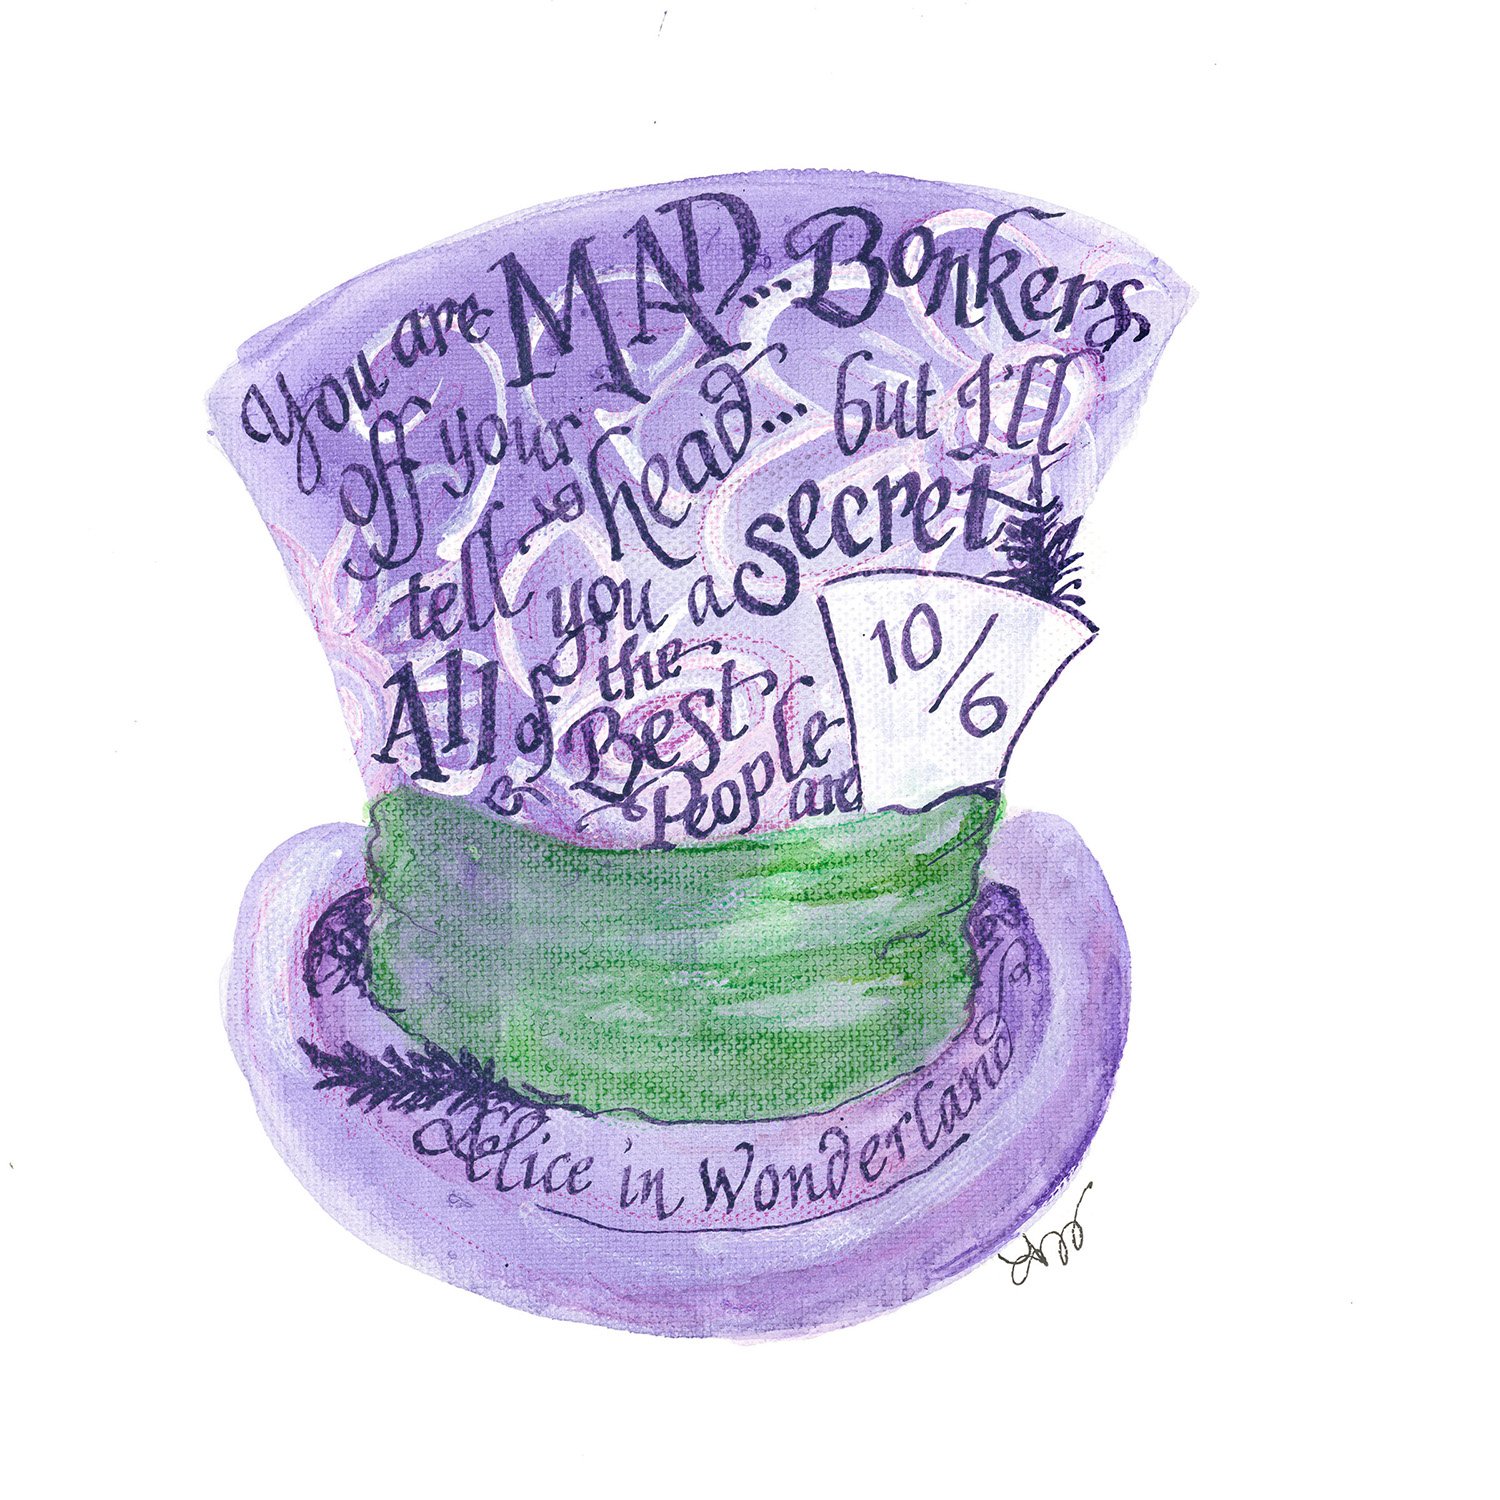 You are MAD... Bonkers,
off your head... but I'll
tell you a secret
All of the
Best
People are
10/6
Alice in Wonderland